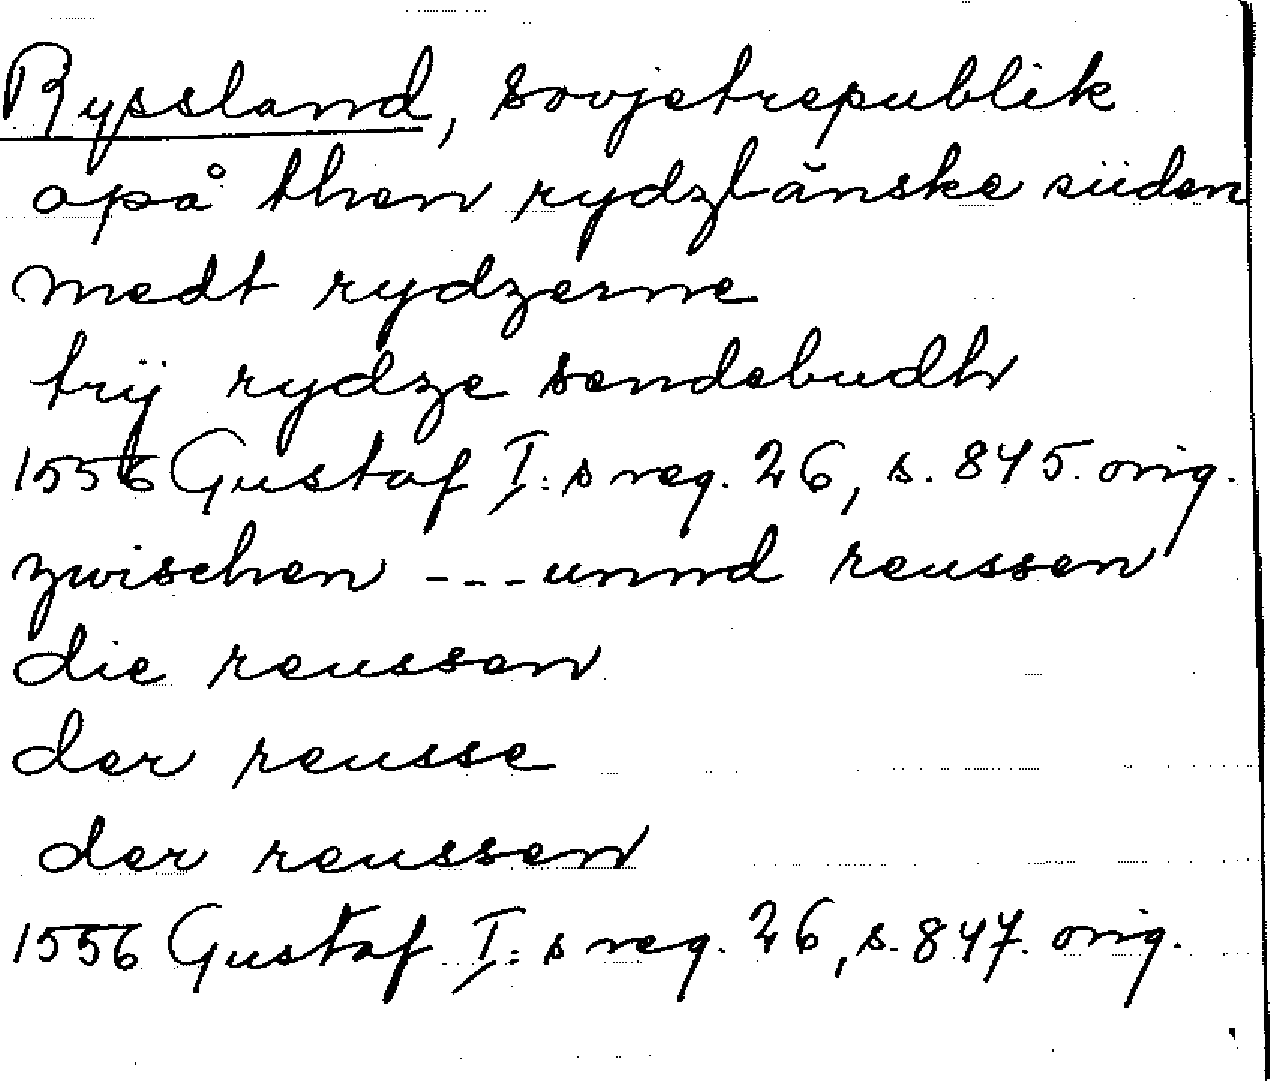 Ryssland, sovjetrepublik
opå then rydzlänske siiden
medt rydzerne
trij rydze sendebudh
1556 Gustaf I:s reg. 26, s. 845. orig.
zwischen --- unnd reussen
die reussen
der reusse
der reussen
1556 Gustaf I:s reg. 26, s. 847. orig.